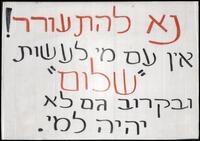 נא להתעורר!
אין עם מי לעשות
"שלום"
ובקרוב גם לא
יהיה למי.